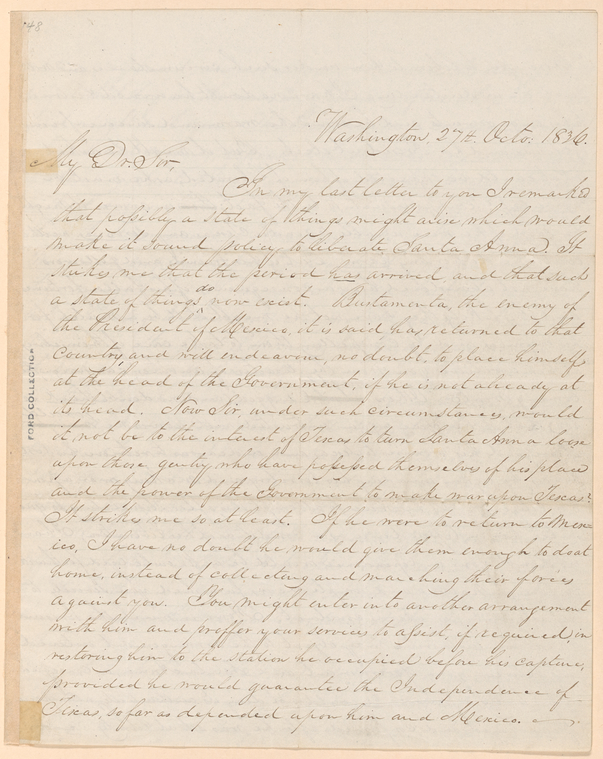 48
Washington, 27th. Octo: 1836.
My Dr. Sir,
In my last letter to you I remarked
that possibly a state of things might arise which would
make it sound policy to liberate Santa Anna. It
strikes me that the period has arrived, and that such
a state of things do now exist. Bustamenta, the enemy of
the President of Mexico, it is said, has, returned to that
country, and will endeavour, no doubt, to place himself
at the head of the Government, if he is not already at
its head. Now Sir, under such circumstances, would
it not be to the interest of Texas to turn Santa Anna loose
upon those gentry, who have possessed themselves of his place
and the power of the Government to make war upon Texas?
It strikes me so at least. If he were to return to Mex=
ico, I have no doubt he would give them enough to do at
home, instead of collecting and marching their forces
against you. You might enter into another arrangement
with him and proffer your services to assist, if required, in
restoring him to the station he occupied before his capture,
provided he would guarantee the Independence of
Texas, so far as depended upon him and Mexico.
FORD COLLECTION